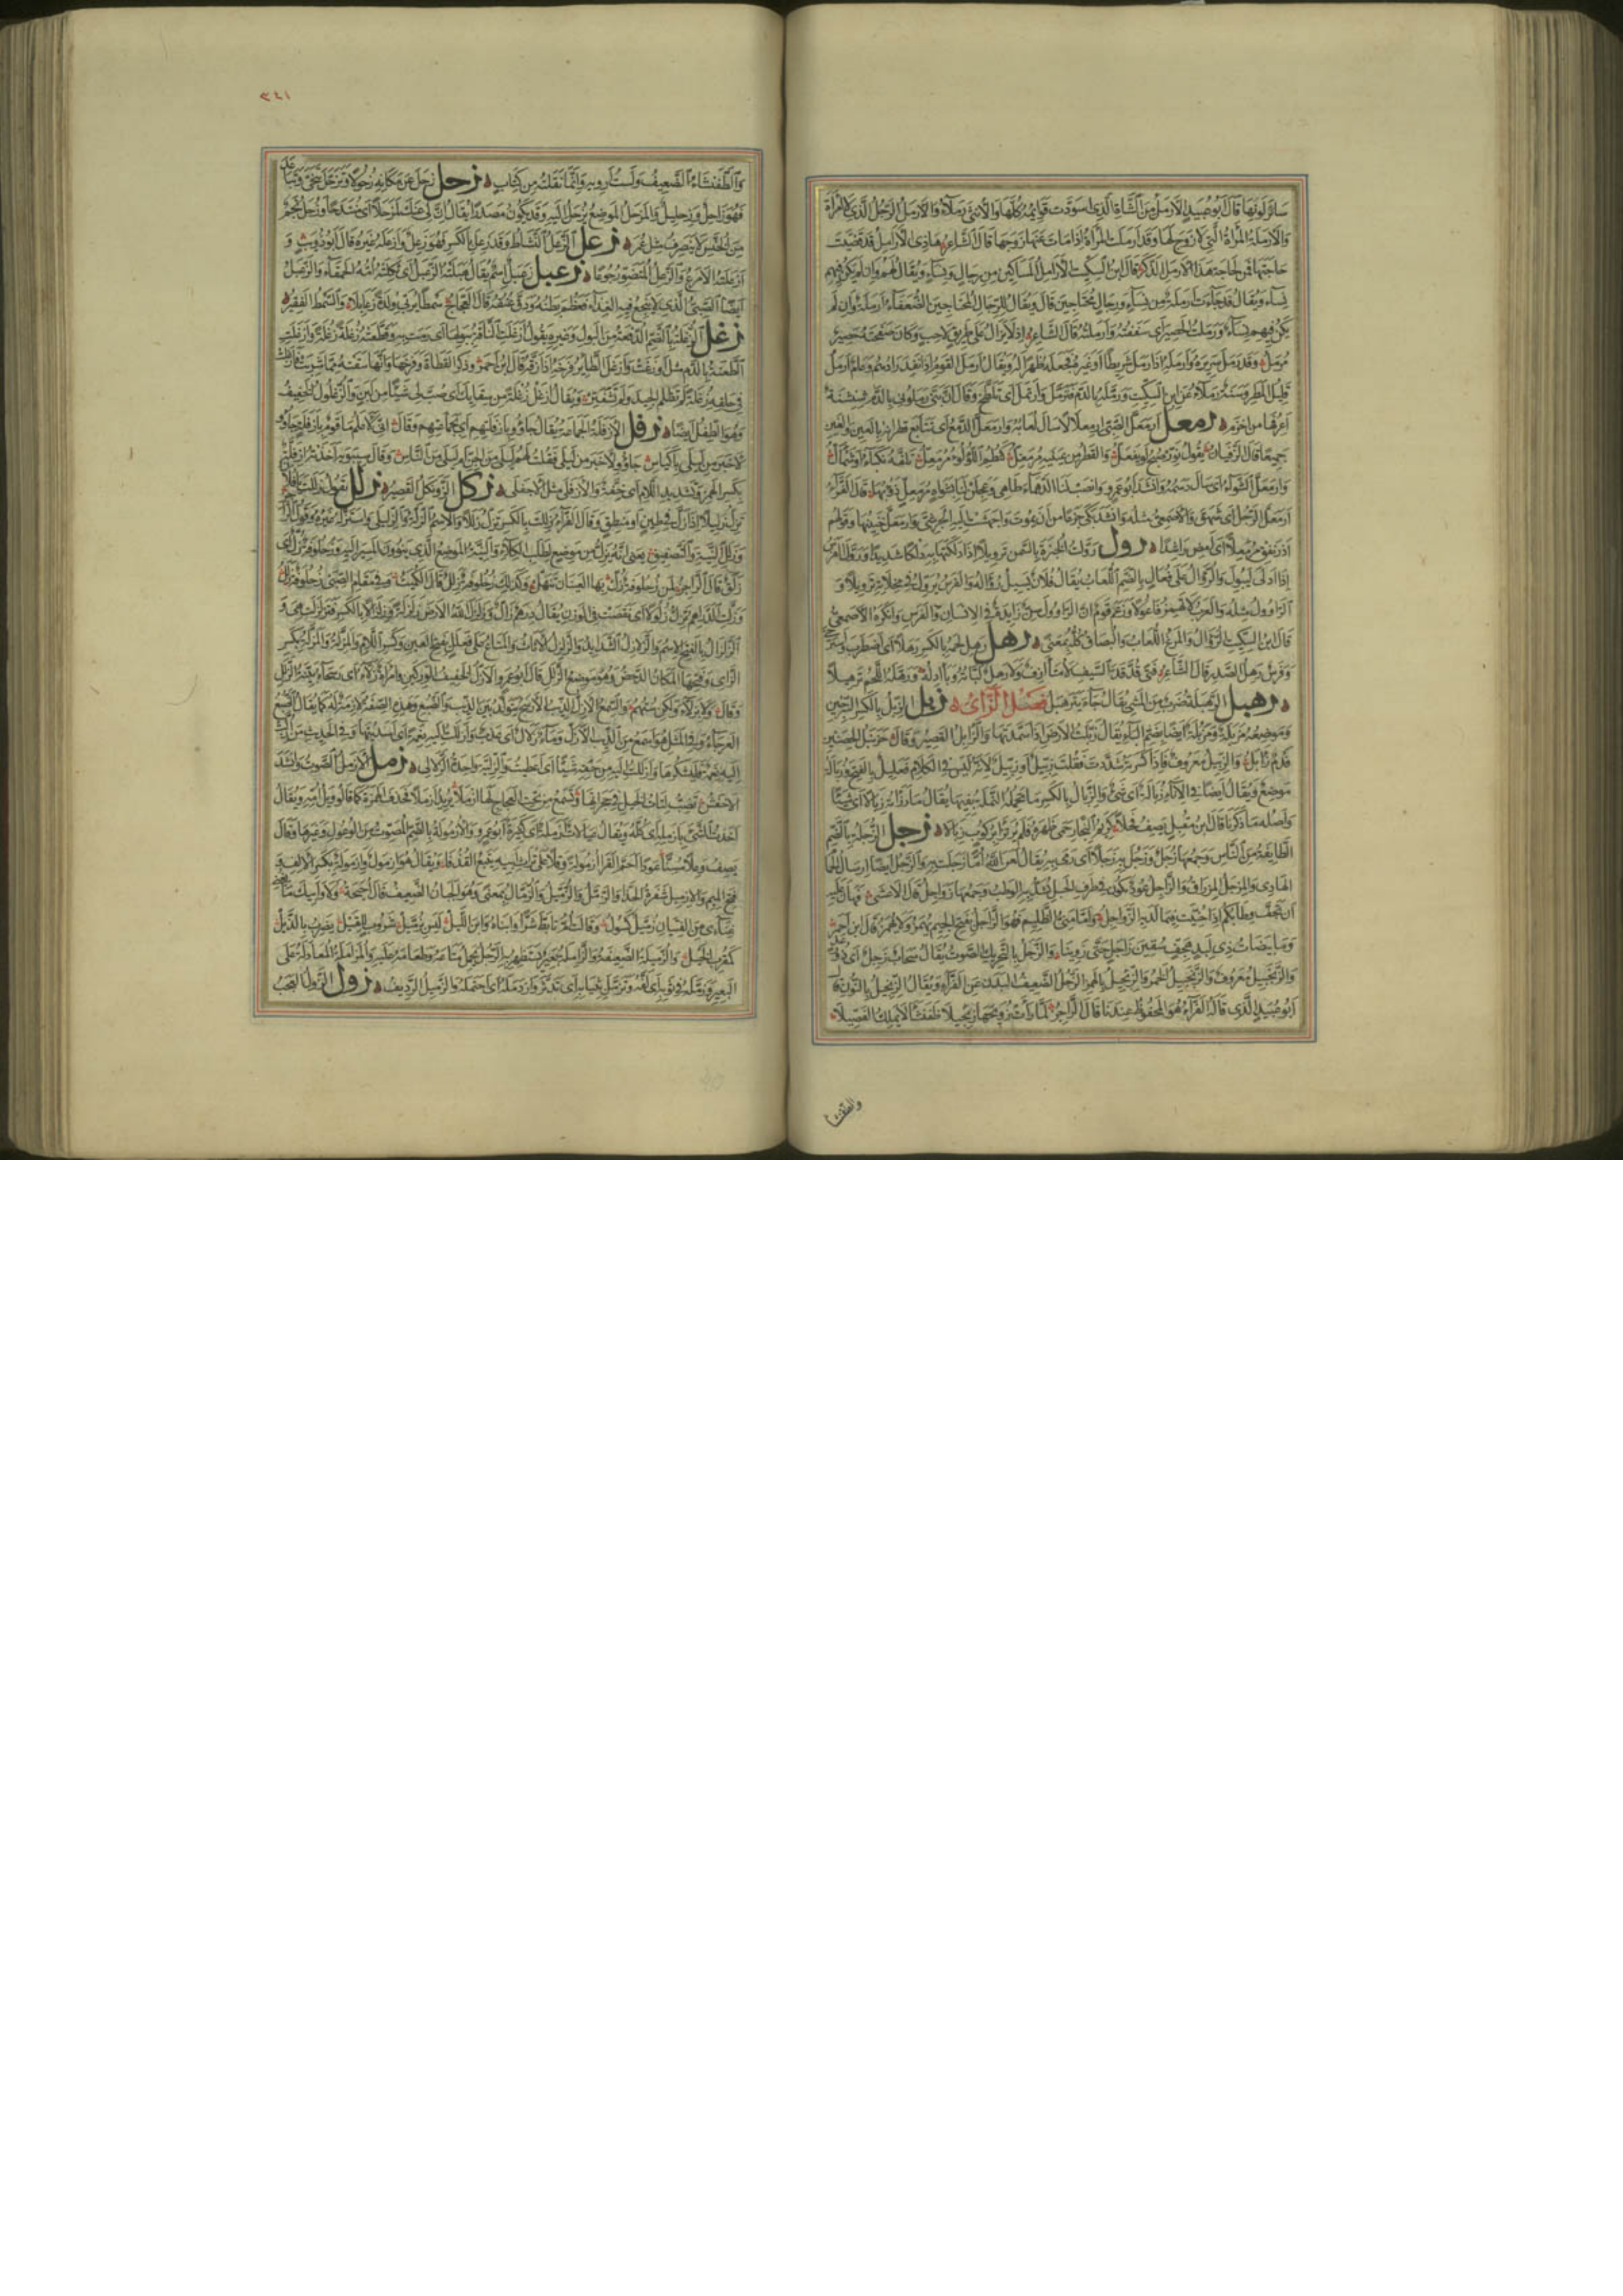 سائر لونها قال أبو عبيد الأرمل من الشاء الذي اسودت قوائمه كلها والأنثى رملاء والأرمل الرجل الذي لا امرأة
والأرملة المرأة التي لا زوج لها وقد أرملت المرأة إذا مات عنها زوجها قال الشاعر هذي الأرامل قد قضيت
حاجتها فمن لحاجة هذا الأرمل الذكر قال ابن السكيت الأرامل المساكين من رجال ونساء ويقال لهم وإن لم يكن فيهم
نساء ويقال قد جاءت أرملة من نساء ورجال محتاجين قال ويقال للرجال المحتاجين الضعفاء أرملة وإن لم
يكن فيهم نساء ورملت الحصير أي سففته وأرملته قال الشاعر إذ لا يزال على طريق لاحب وكأن صفحته حصير
مرمل وقد رمل سريره وأرمله إذا رمل شريطا أو غيره فجعله ظهرا له ويقال أرمل القوم إذا نفد زادهم وعام أرمل
قليل المطر وسنة رملاء عن ابن السكيت ورمله بالدم فترمل وارتمل أي تلطخ وقال إن بني رملوني بالدم شنشنة
أعرفها من أخزم رمعل ارمعل الصبي ارمعلالا سال لعابه وارمعل الدمع أي تتابع قطرانه بالعين والغين
جميعا قال الزفيان يقول نور صبح لو يفعل والقطر عن متنيه مرمعل كنظم اللؤلؤ مرمعل تلفه نكباء أو شمأل
وارمعل الشواء أي سال دسمه وأنشد أبو عمرو وانصب لنا الدهماء طاهي وعجلن لنا بشواة مرمعل ذؤوبها قال الفراء
ارمعل الرجل أي شهق والأصمعي مثله وأنشد
ادرنفق مرمعلا أي امض راشدا رول رولت الخبزة بالسمن ترويلا إذا دلكتها به دلكا شديدا ورول الفرس
إذا أدلى ليبول والروال على فعال بالضم اللعاب يقال فلان يسيل رواله والفرس يرول في مخلاته ترويلا و
الراوول مثله والعرب لا تهمز فاعولا وزعم قوم أن الراوول سن زائدة في الإنسان والفرس وأنكره الأصمعي
قال ابن السكيت الروال والمرغ اللعاب والبصاق كله بمعنى رهل رهل لحمه بالكسر رهلا أي اضطرب واسترخى
وفرس رهل الصدر قال الشاعر فتى قد قد السيف لا متآزف ولا رهل لباته وبآدله ورهله اللحم ترهيلا
رهبل الرهبلة ضرب من المشي يقال جاء يترهبل فصل الزاي زبل الزبل بالكسر السرجين
وموضعه مزبلة ومزبلة أيضا بضم الباء يقال زبلت الأرض إذا سمدتها والزأبل القصير وقال حزنبل الحضنين
فدم زأبل والزبيل معروف فإذا كسرته شددت فقلت زبيل أو زنبيل لأنه ليس في الكلام فعليل بالفتح وزبالة
موضع ويقال أيضا ما في الإناء زبالة أي شيء والزبال بالكسر ما تحمله النملة بفيها يقال ما رزأته زبالا أي شيئا
وأصله ما ذكرنا قال ابن مقبل يصف فحلا كريم النجار حمى ظهره فلم يرتزأ بركوب زبالا زجل الزجلة بالضم
الطائفة من الناس وجمعها زجل وزجل به زجلا أي رمى به يقال لعن الله أما زجلت به والزجل أيضا إرسال الحمام
الهادي والمزجل المزراق والزاجل عود يكون في طرف الحبل وجمعها زواجل قال الأعشى فهان عليه
أن تجف وطابكم إذا حنيت فيما لديه الزواجل وأما مني الظليم فهو الزأجل بفتح الجيم يهمز ولا يهمز قال ابن أحمر
وما بيضات ذي لبد هجف سقين بزاجل حتى روينا والزجل بالتحريك الصوت يقال سحاب زجل أي ذو رعد
والزنجبيل معروف والزنجبيل الخمر والزئجيل بالهمز الرجل الضعيف البدن عن الفراء ويقال الزنجيل بالنون قال
أبو عبيد الذي قاله الفراء هو المحفوظ عندنا قال الراجز لما رأت زويجها زنجيلا طفنشأ لا يملك الفصيلا
والطفنشأ
٣٤١
والطفنشأ الضعيف ولست أرويه وإنما نقلته من كتاب زحل زحل عن مكانه زحولا وتزحل تنحى وتباعد
فهو زحل وزحليل والمزحل الموضع يزحل إليه وقد يكون مصدرا يقال إن لي عنك لمزحلا أي منتدحا وزحل نجم
من الخنس لا ينصرف مثل عمر زعل الزعل النشاط وقد زعل بالكسر فهو زعل وأزعله غيره قال أبو ذؤيب و
أزعلته الأمرع والزعل المتضور جوعا زعبل زعبل اسم يقال هبلته الزعبل أي ثكلته أمه الحمقاء والزعبل
أيضا الصبي الذي لا ينجع فيه الغذاء فعظم بطنه ودق عنقه قال العجاج سمطا يربي ولدة زعابلا والسمط الفقير
زغل الزغلة بالضم الدفعة من البول وغيره ويقول أزغلت الناقة ببولها أي رمت به وقطعته زغلة زغلة وأزغلت
الطعنة بالدم مثل أوزغت وأزغل الطائر فرخه إذا زقه قال ابن أحمر وذكر القطاة وفرخها وأنها سقته مما شربت فأزغلت
في حلقه زغلة لم تظلم الجيد ولم تشفتر ويقال أزغل لي زغلة من سقائك أي صب لي شيئا من لبن والزغلول الخفيف
وهو الطفل أيضا زفل الأزفلة الجماعة يقال جاؤوا بأزفلتهم أي بجماعتهم وقال إني لأعلم ما قوم بأزفلة جاؤوا
لأخبر من ليلى بأكياس جاؤوا لأخبر من ليلى فقلت لهم ليلى من الجن أم ليلى من الناس وقال سيبويه أخذته إزفلة
بكسر الهمزة وتشديد اللام أي خفة والأزفلى مثل الأجفلى زكل الزونكل القصير زلل تقول زللت يا فلان
تزل زليلا إذا زل في طين أو منطق وقال الفراء زللت بالكسر تزل زللا والاسم الزلة والزليلى واستزله غيره
يعني أنه يزل من موضع لطلب الكلأ والنية الموضع الذي ينوون المسير إليه وزحلوفة زل أي
زلق قال الراجز لمن زحلوفة زل بها العينان تنهل وكذلك زحلوقة زلل قال الكميت وفي مقام الصبى زحلوقة زلل
وزلت الدراهم تزل زلولا أي نقصت في الوزن يقال درهم زال وزلزل الله الأرض زلزلة وزلزالا بالكسر فتزلزلت هي و
الزلزال بالفتح الاسم والزلازل الشدائد والزلزل الأثاث والمتاع على فعلل بفتح العين وكسر اللام والمزلة والمزلة بكسر
الزاي وفتحها المكان الدحض وهو موضع الزلل قال أبو عمرو الأزل الخفيف الوركين وامرأة زلاء أي رسحاء بينة الزلل
والسمع الأزل الذئب الأرسح يتولد بين الذئب والضبع وهذه الصفة لازمة له كما يقال الضبع
العرجاء وفي المثل هو أسمع من الذئب الأزل وماء زلال أي عذب وأزللت إليه نعمة أي أسديتها وفي الحديث من أزلت
إليه نعمة فليشكرها وأزللت إليه من حقه شيئا أي أعطيت والزلية واحدة الزلالي زمل الأزمل الصوت وأنشد
الأخفش تضب لثات الخيل في حجراتها وتسمع من تحت العجاج لها ازملا يريد أزملا فحذف الهمزة كما قالوا ويلمه ويقال
أخذت الشيء بأزمله أي كله ويقال عيالات أزملة أي كثيرة أبو عمرو والأزمولة بالضم المصوت من الوعول وغيرها وقال
يصف وعلا مسنا عودا أحم القرا أزمولة وقلا على تراث أبيه يتبع القذفا ويقال هو إزمول وإزمولة بكسر الألف و
فتح الميم والإزميل شفرة الحذاء والزمل والزميل والزمال بمعنى وهو الجبان الضعيف قال أحيحة ولا وأبيك ما يغني
غنائي من الفتيان زميل كسول وقالت أم تأبط شرا وا ابناه وا ابن الليل ليس بزميل شروب للقيل يضرب بالذيل
كمقرب الخيل والزميلة الضعيفة والزاملة بعير يستظهر به الرجل يحمل متاعه وطعامه عليه والمزاملة المعادلة على
البعير وزمله في ثوبه أي لفه وتزمل بثيابه أي تدثر وازدمله أي احتمله والزميل الرديف زول الزول العجب